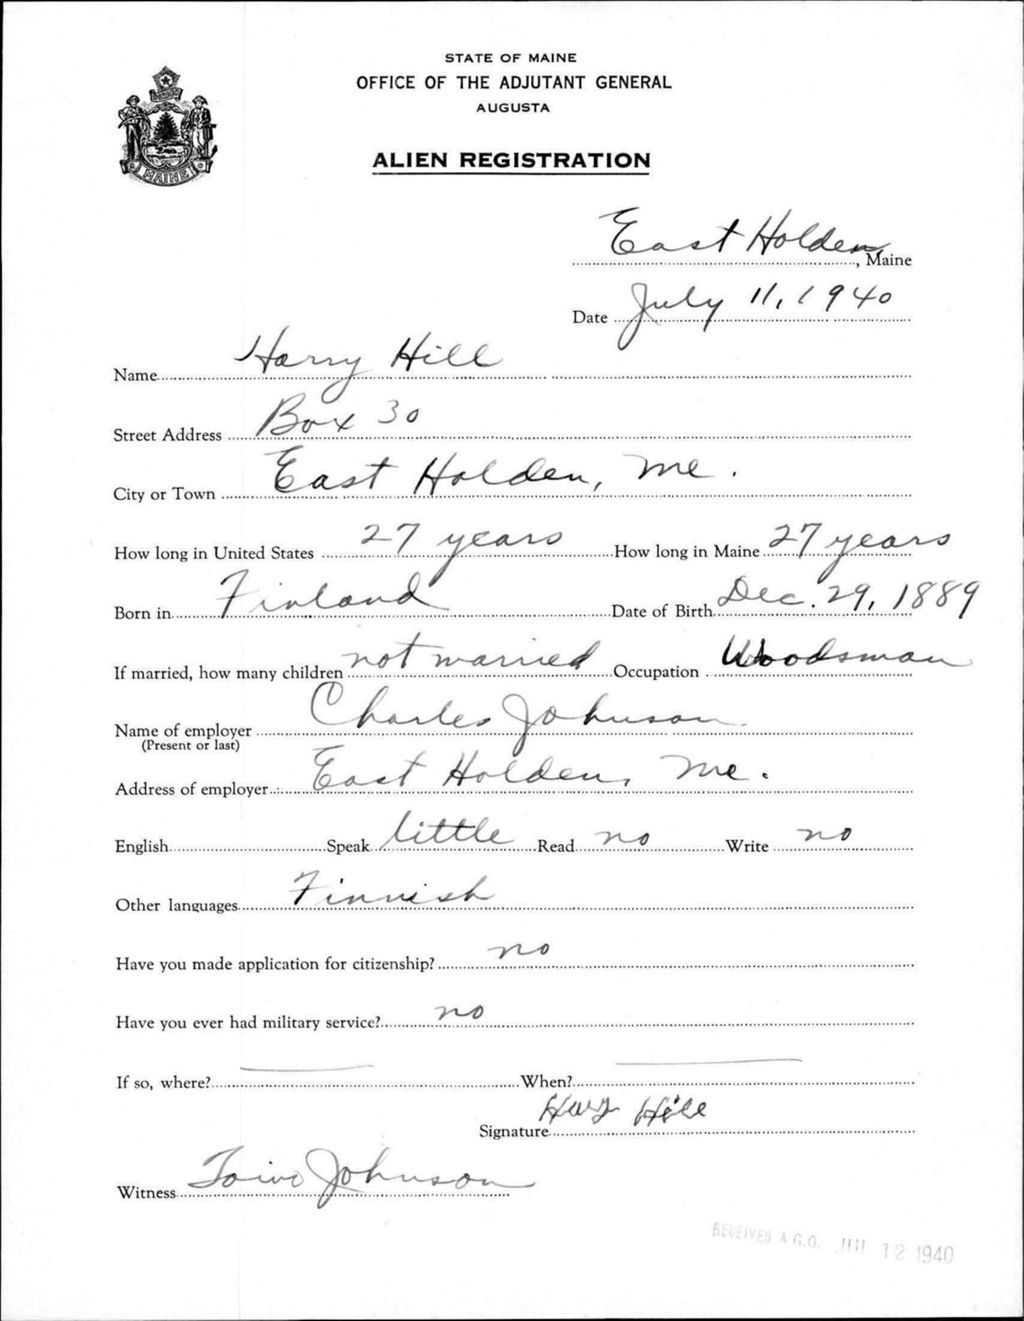 STATE OF MAINE
OFFICE OF THE ADJUTANT GENERAL
AUGUSTA
ALIEN REGISTRATION
MAINE
East Holden, Maine
Date July 11, 1940
Name Harry Hill
Street Address Box 30
City or Town East Holden, Me.
How long in United States 27 years How long in Maine 27 years
Born in Finland Date of Birth Dec. 29, 1889
If married, how many children not married Occupation Woodsman
Name of employer Charles Johnson
(Present or last)
Address of employer East Holden, Me.
English Speak little Read no Write no
Other languages Finnish
Have you made application for citizenship? no
Have you ever had military service? no
If so, where? When?
Signature Hary Hill
Witness Toivo Johnson
RECEIVED A.G.O. JUL 12 1940